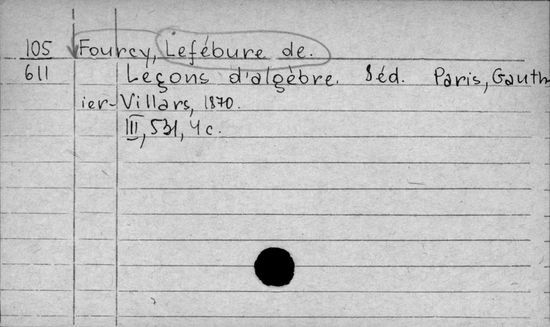 105 Fourcy, Lefébure de.
611 Leçons d'algèbre. 8éd. Paris, Gauth
ier-Villars, 1870.
III, 531, 4 c.